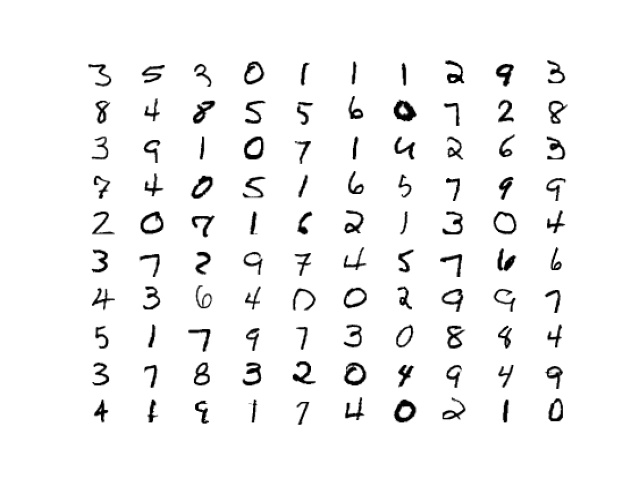 3 5 3 0 1 1 1 2 9 3
8 4 8 5 5 6 0 7 2 8
3 9 1 0 7 1 4 2 6 3
7 4 0 5 1 6 5 7 9 9
2 0 7 1 6 2 1 3 0 4
3 7 2 9 7 4 5 7 6 6
4 3 6 4 0 0 2 9 9 7
5 1 7 9 7 3 0 8 8 4
3 7 8 3 2 0 4 9 4 9
4 1 9 1 7 4 0 2 1 0